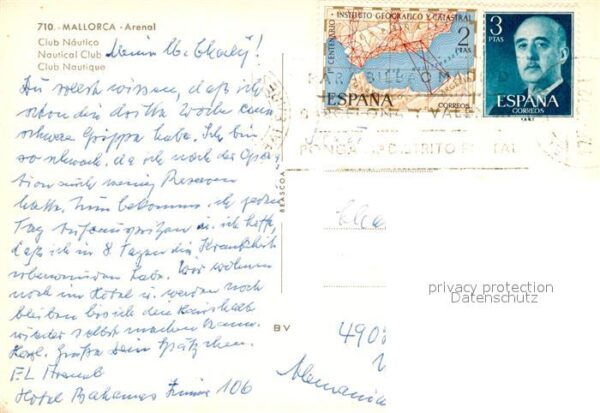 710. - MALLORCA - Arenal
Club Náutico
Nautical Club
Club Nautique
Du sollst wissen, daß ich
schon die dritte Woche eine
schwere Grippe habe. Ich bin
so schwach, da ich nach der Opera-
tion noch wenig Reserven
hatte. Nun bekomme ich jeden
Tag u. ich hoffe,
daß ich in 8 Tagen die Krankheit
überwunden habe. Wir wohnen
noch im Hotel u. werden noch
bleiben bis ich den Haushalt
wieder selbst machen kann.
Herzl. Grüße Dein
El Arenal
Hotel Bahamas 106
BEASCOA
BV
CENTENARIO INSTITUTO GEOGRAFICO Y CATASTRAL
2
PTAS
ESPAÑA
CORREOS
3
PTAS
ESPAÑA
CORREOS
PONGA DISTRITO POSTAL
490
Alemania
privacy protection
Datenschutz